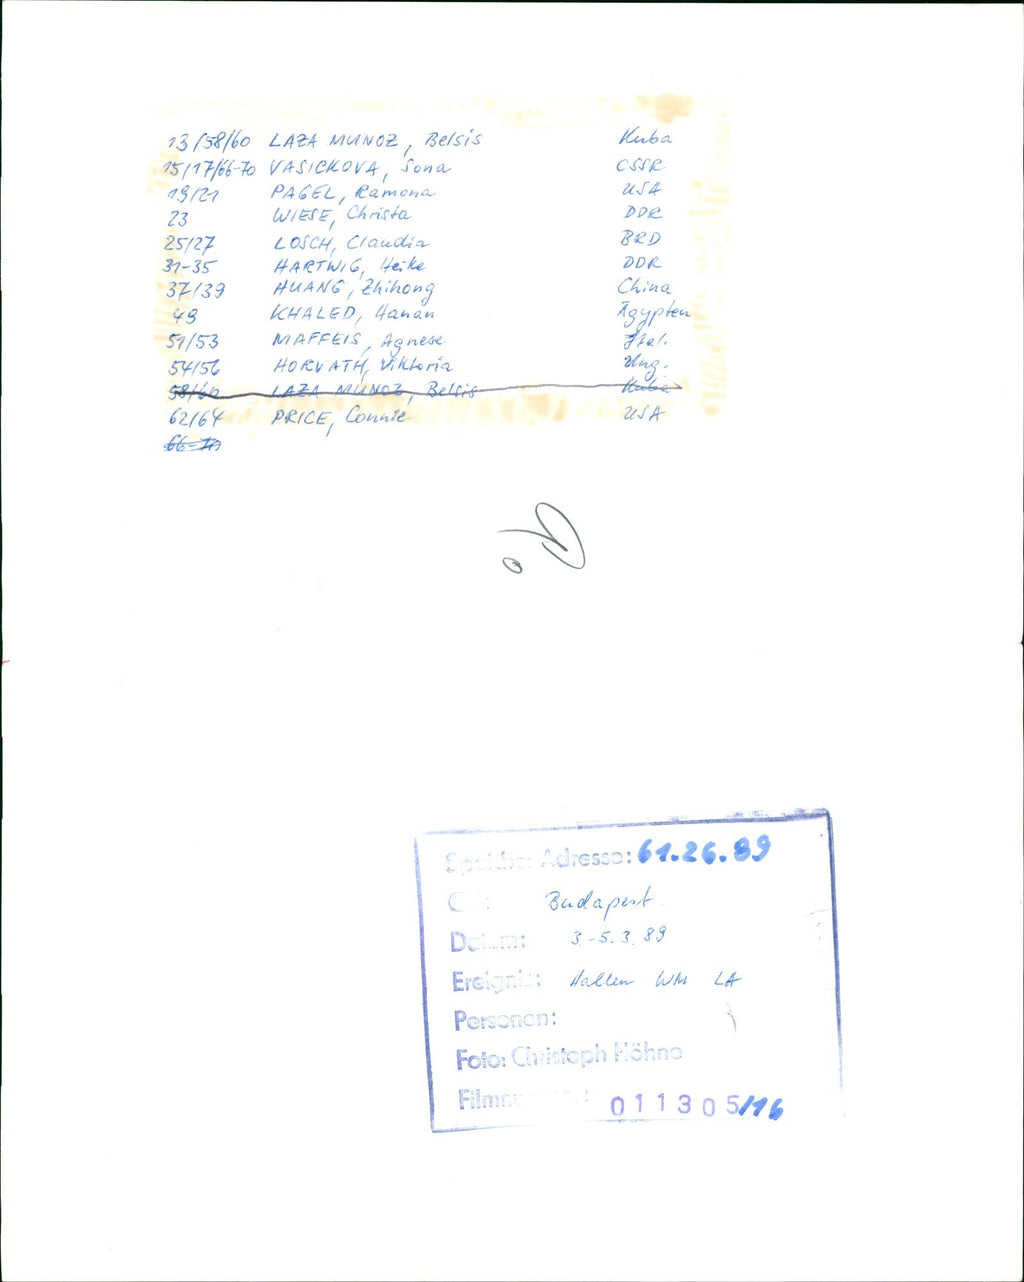 13/58/60 LAZA MUNOZ, Belsis Kuba
15/17/66-70 VASICKOVA, Sona CSSR
19/21 PAGEL, Ramona USA
23 WIESE, Christa DDR
25/27 LOSCH, Claudia BRD
31-35 HARTWIG, Heike DDR
37/39 HUANG, Zhihong China
49 KHALED, Hanan Ägypten
51/53 MAFFEIS, Agnese Ital.
54/56 HORVATH, Viktoria Ung.
58/60 LAZA MUNOZ, Belsis Kuba
62/64 PRICE, Connie USA
66-70
Speicher Adresse: 61.26.89
Budapest
Datum: 3.-5.3.89
Ereignis: Hallen WM LA
Personen:
Foto: Christoph Höhne
011305/16